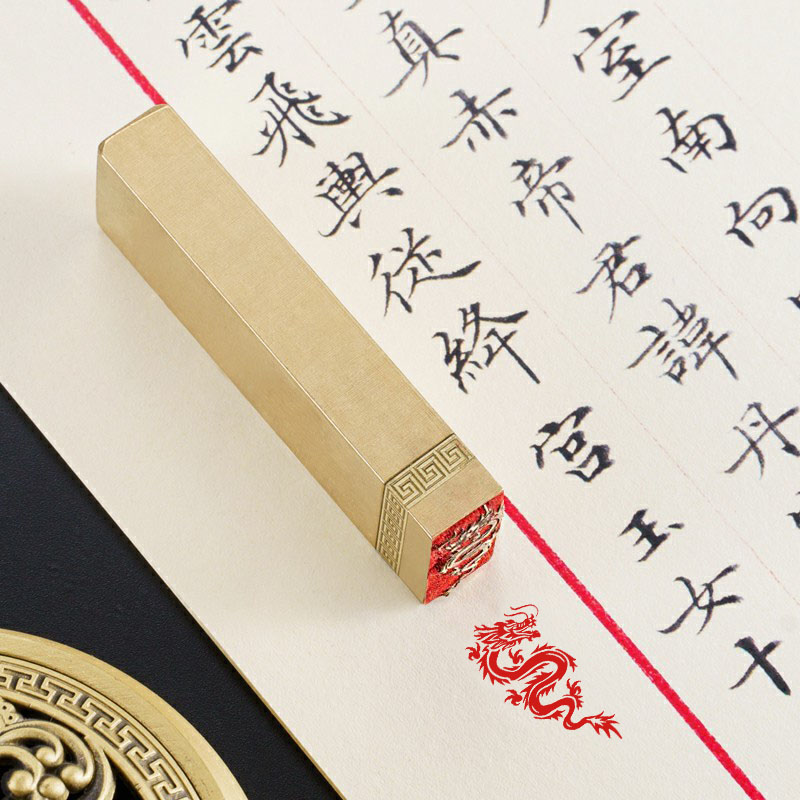 室南向
真赤帝君諱丹
雲飛輿從絳宮玉女十